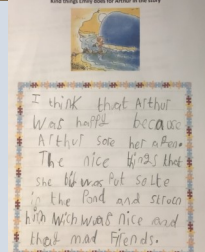 Kind things Emily does for Arthur in the story
I think that Arthur
was happy because
Arthur sore her
The nice that
she was Put
in the Pond and
him wich was nice and
that mad Friends.